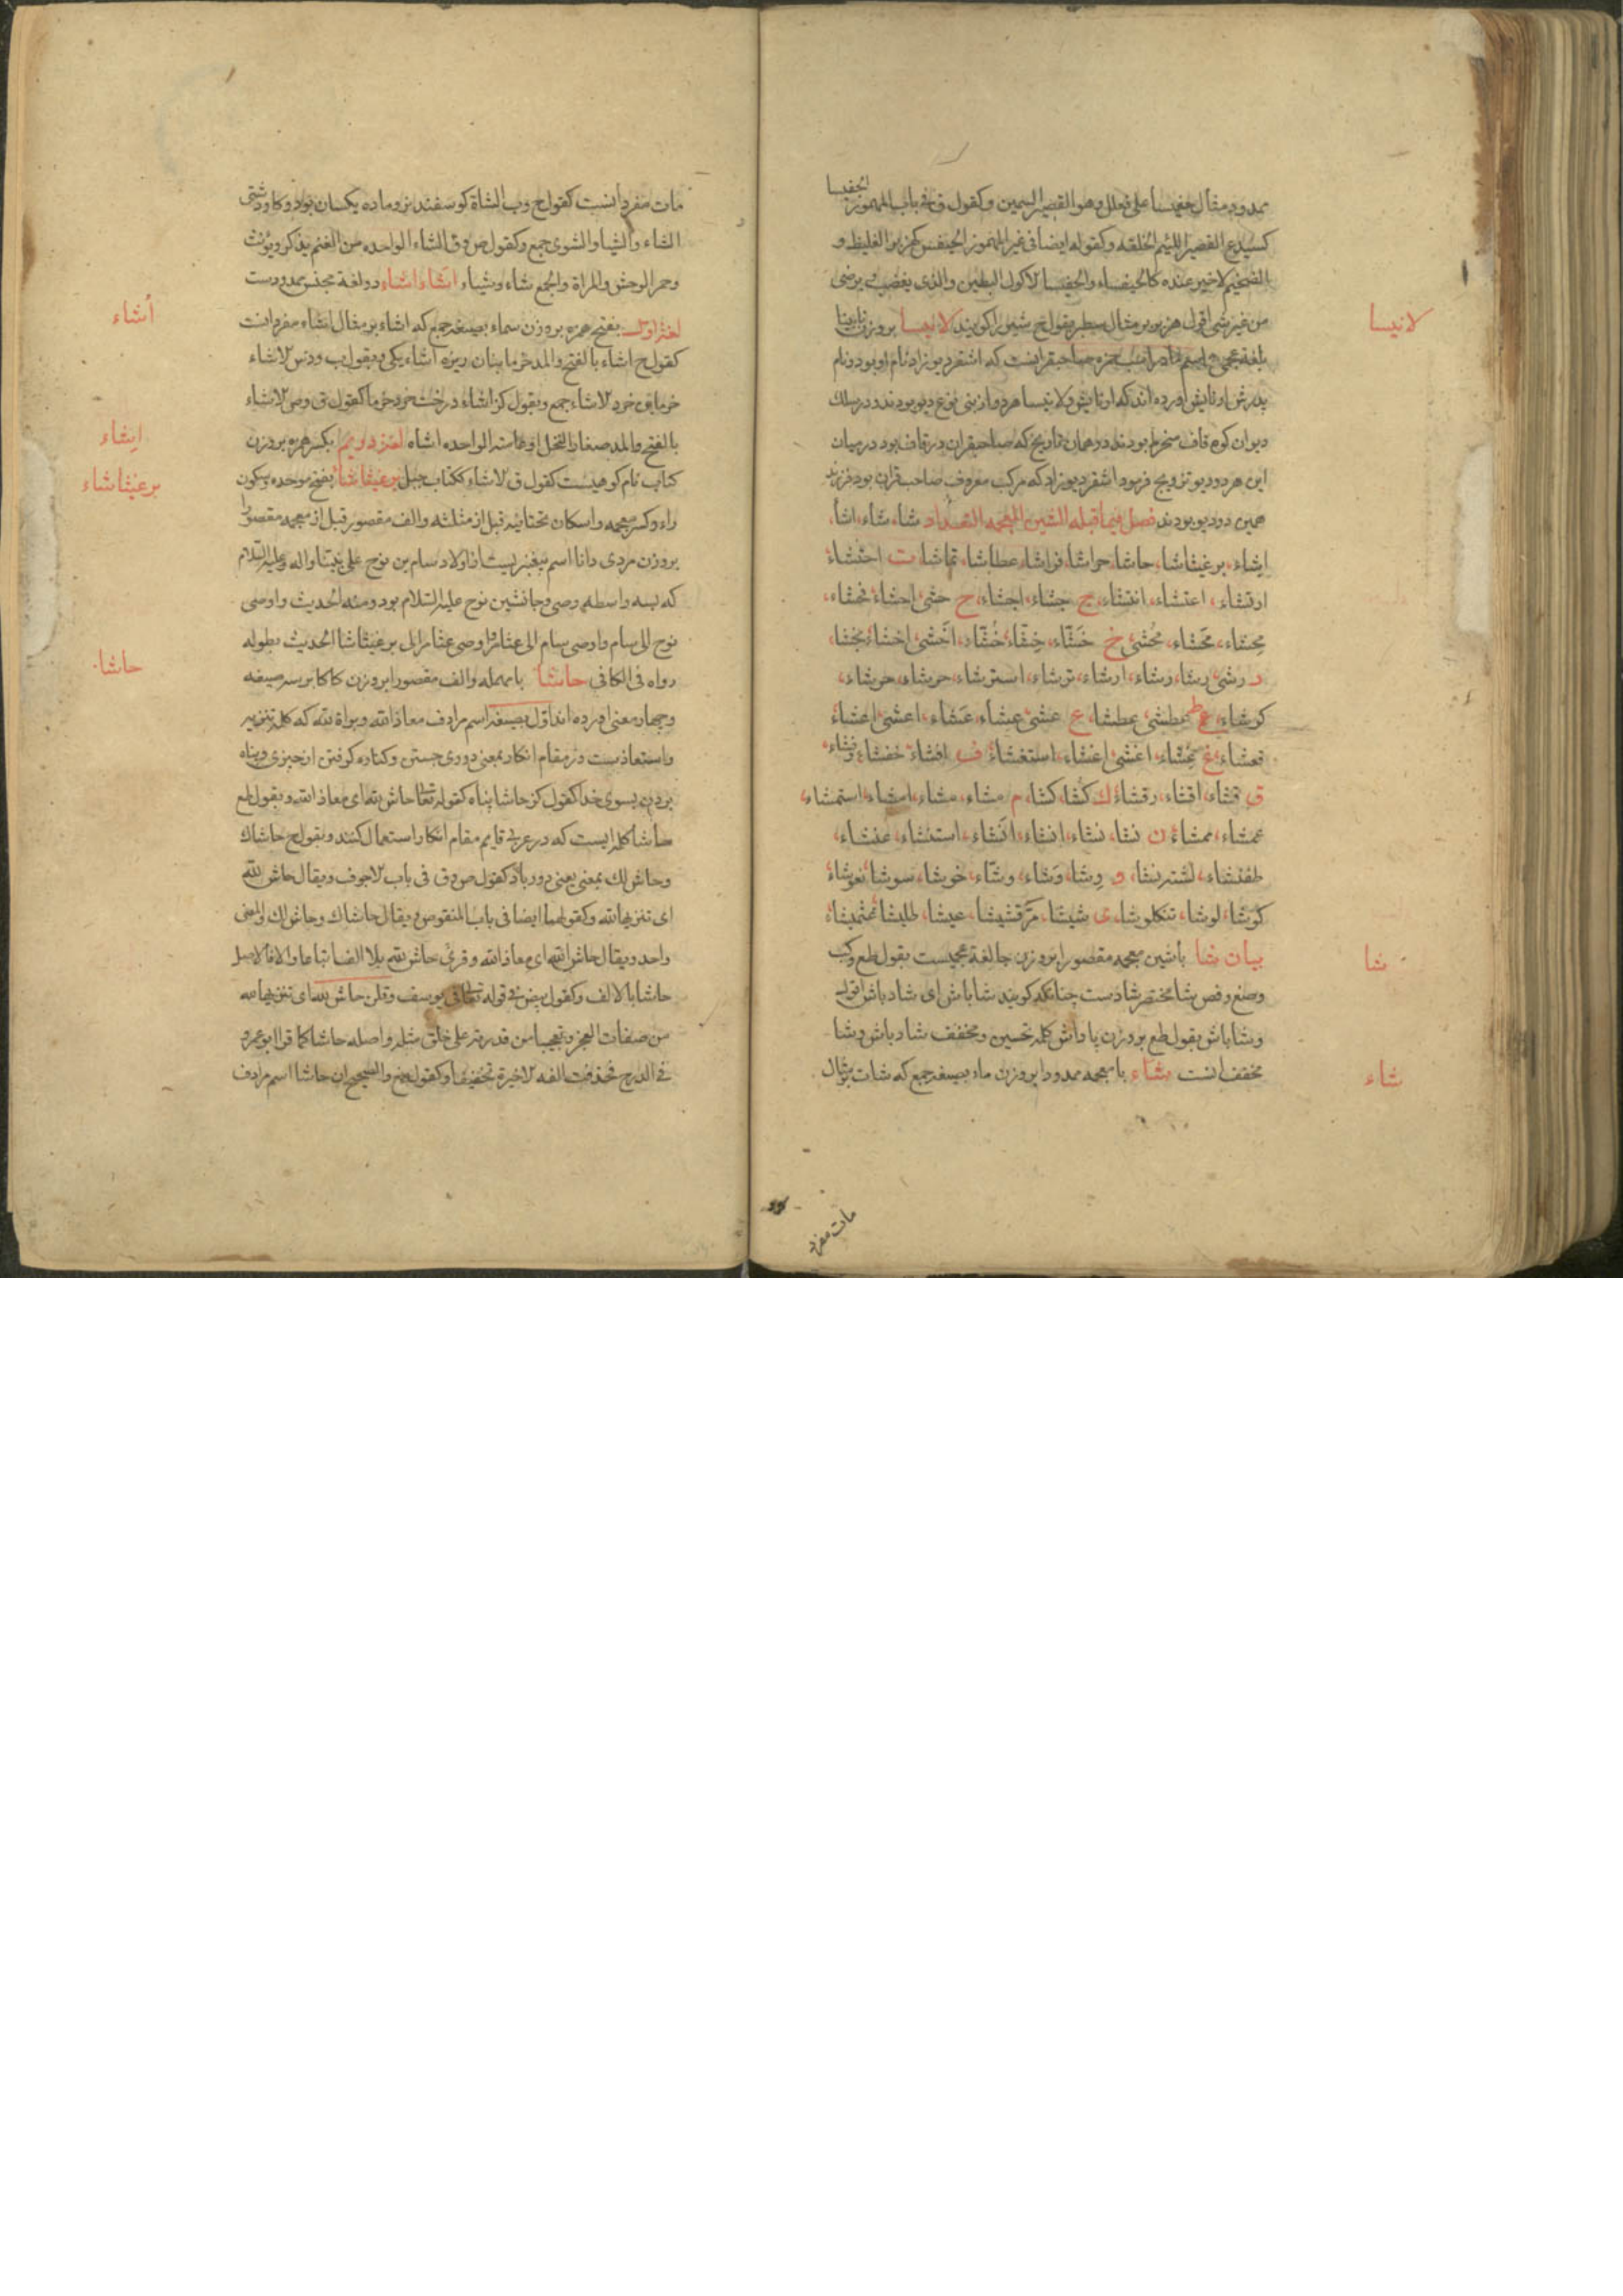 ممدود مثال حفیسا علی فعلل وهو القصیر السمین وکقول ق فی باب المهموز الحفیسا
کسمیدع القصیر اللئیم الخلقه وکقوله ایضا فی غیر المهموز الحیفس کهزبر الغلیظ و
الضخیم لاخیر عنده کالحیفساء والحفیسا الاکول البطین والذی یغضب ویرضی
من غیر شی اقول هزبر بر مثال سطبر بقول خ شیر را کویند لانیسا بر وزن نابینا
لانیسا
بلغة عجمی اسم مادر اسب حمزه صاحبقرانست که اشقر دیوزاد نام او بود ونام
پدرش ارنایش اورده اند که ارنایش ولانیسا هر دو از بنی نوع دیو بودند ودر سلک
دیوان کوه قاف منخرط بودند در همان تاریخ که صاحبقران در قاف بود در میان
این هر دو دیو تزویج فرمود اشقر دیوزاد که مرکب معروف صاحب قران بود فرزند
همین دو دیو بودند فصل فیما قبله الشین المعجمه التعداد شا، شاء، اشاء،
ایشاء، برغیثاشا، حاشا، حواشا، فراشا، عطاشا، تماشا، ت احتشاء
ارتشاء، اعتشاء، انتشاء، ج جشاء، اجشاء، ح حشی، احشاء، تحشاء،
محشاء، محشاء، محشی خ خشاء، خشاء، خشاء، اخشی، اخشاء، بخشا،
ر رشی، رشا، رشاء، ارشاء، ترشاء، استرشاء، حرشاء، حرشاء،
کرشاء، ط عطشی، عطشا، ع عشی، عشاء، عشاء، اعشی، اعشاء
تعشاء، غ غشاء، اغشی، اغشاء، استغشاء ف افشاء، خفشاء، وفشاء،
ق قشاء، اقشاء، رقشاء ک کشا، کشا، م مشاء، مشاء، امشاء، استمشاء،
عمشاء، ممشاء ن نشا، نشاء، انشاء، انشاء، استنشاء، عنشاء،
طفنشاء، لشترنشا، و وشا، وشاء، وشاء، خوشا، سوشا، نعوشاء
کوشا، لوشا، تنکلوشا، ی شیشا، مرقشیشا، عیشا، طلیشا،
بیان شا باشین معجمه مقصورا بر وزن جا لغة عجمیست بقول طع وکب
شا
وصنع وفص شا مختصر شادست چنانکه کویند شاباش ای شاد باش اقول
وشاباش بقول طع بر وزن پاداش کلمه تحسین ومخفف شاد باش وشا
مخفف انست شاء با معجمه ممدودا بر وزن ماء بصیغه جمع که شات بر مثال
شاء
مات مفرد
مات مفرد انست کقول خ وب الشاة کوسفند نر وماده یکسان بود وکاو دشتی
الشاء والشیا والشوی جمع وکقول ص وق الشاء الواحده من الغنم یذکر ویونث
وحمر الوحش والمراة والجمع شاء وشیاء اشاء اشاء دو لغة مجنس ممدودست
أشاء
لغة اول بفتح همزه بر وزن سماء بصیغه جمع که اشاء بر مثال اشاه مفرد انست
کقول خ اشاء بالفتح والمد خرما بنان ریزه اشاء یکی وبقول ب ودس الاشاء
خرمابن خرد الاشاء جمع وبقول کز اشاء درخت خرد خرما کقول ق وص الاشاء
بالفتح والمد صغار النخل او عامته الواحده اشاه لغة دویم بکسر همزه بر وزن
ایشاء
کتاب نام کوهیست کقول ق الاشاء ککتاب جبل برغیثاشا بفتح موحده وسکون
برغیثاشاء
راء وکسر معجمه واسکان تحتانیه قبل از مثلثه والف مقصور قبل از معجمه مقصورا
بر وزن مردی دانا اسم پیغمبریست از اولاد سام بن نوح علی نبینا واله وعلیه السلام
که بسه واسطه وصی وجانشین نوح علیه السلام بود ومنه الحدیث واوصی
نوح الی سام واوصی سام الی عثامر واوصی عثامر الی برغیثاشا الحدیث بطوله
رواه فی الکافی حاشا با مهمله والف مقصورا بر وزن کاکا بر سه صیغه
حاشا
وچهار معنی اورده اند اول بصیغه اسم مرادف معاذ الله وبراة لله که کلمه تنزیه
واستعاذست در مقام انکار بمعنی دوری جستن وکناره کرفتن از چیزی وپناه
بردن بسوی خدا کقول کز حاشا پناه کقوله تعا حاش لله ای معاذ الله وبقول طع
حاشا کلمه ایست که در عربی قایم مقام انکار استعمال کنند وبقول ح حاشاک
وحاش لک بمعنی یعنی دور باد کقول ص وق فی باب الاجوف ویقال حاش لله
ای تنزیها لله وکقولهما ایضا فی باب المنقوص ویقال حاشاک وحاش لک والمعنی
واحد ویقال حاش لله ای معاذ الله وقرئ حاش لله بلا الف اتباعا والا فالاصل
حاشا بالالف وکقول بیض فی قوله تعالی فی یوسف وقلن حاش لله ای تنزیها له
من صفات العجز وتعجبا من قدرته علی خلق مثله واصله حاشا کما قرا ابو عمرو
فی الدرج فحذفت الفه الاخیرة تخفیفا وکقول والصحیح ان حاشا اسم مرادف